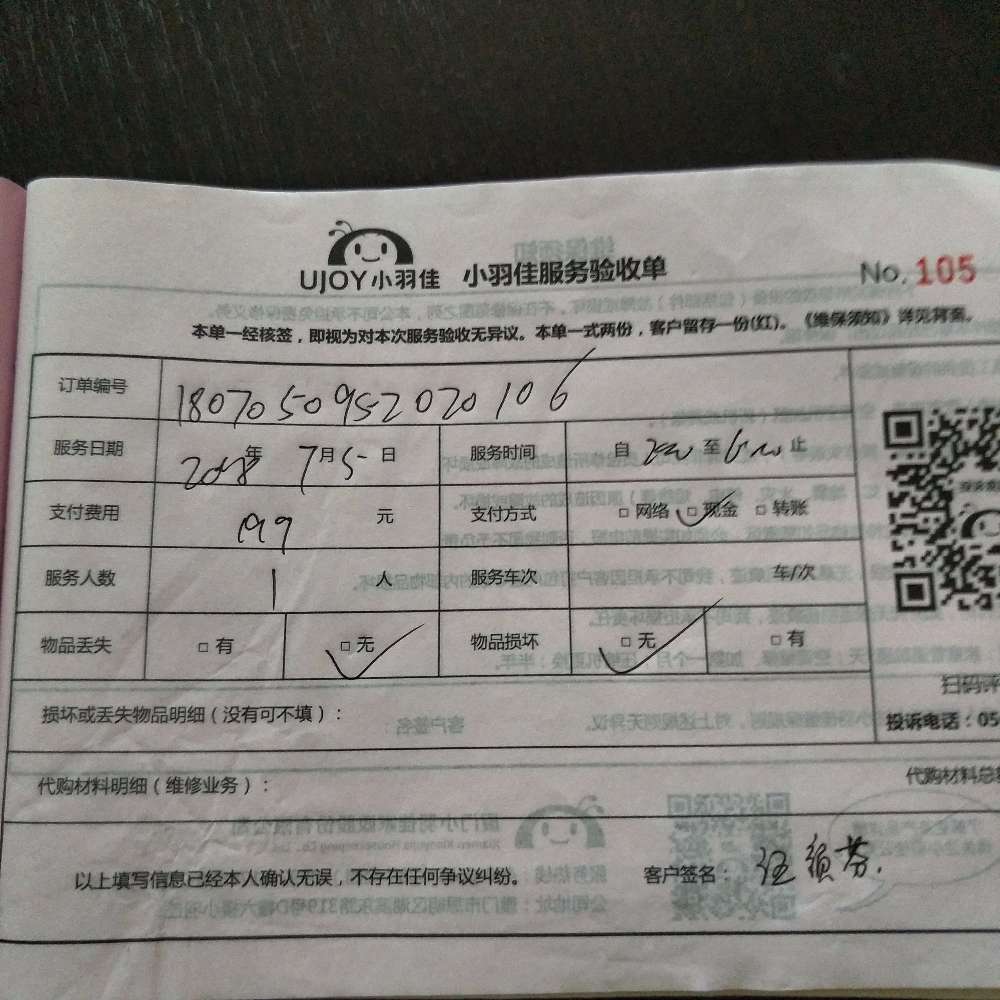 UJOY小羽佳 小羽佳服务验收单 No. 105
本单一经核签，即视为对本次服务验收无异议。本单一式两份，客户留存一份(红)。《维保须知》详见背案。
订单编号 1807050952020106
服务日期 2018年 7月5日 服务时间 自 至 止
支付费用 199 元 支付方式 □网络 □现金 □转账
服务人数 1 人 服务车次 车/次
物品丢失 □有 □无 物品损坏 □无 □有
损坏或丢失物品明细（没有可不填）：
扫码评
投诉电话：05
代购材料明细（维修业务）： 代购材料总
以上填写信息已经本人确认无误，不存在任何争议纠纷。 客户签名：